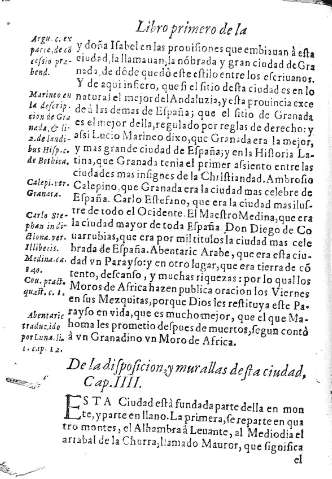 Libro primero de la
y doña Isabel en las prouisiones que embiauan à esta
ciudad, la llamauan, la nõbrada y gran ciudad de Gra
nada, de dõde quedó este estilo entre los escriuanos.
Y de aqui infiero, que si el sitio desta ciudad es en lo
natural el mejor del Andaluzia, y esta prouincia exce
de à las demas de España; que el sitio de Granada
es el mejor della, regulado por reglas de derecho: y
assi Lucio Marineo dixo, que Granada era la mejor,
y mas grande ciudad de España; y en la Historia La-
tina, que Granada tenia el primer assiento entre las
ciudades mas insignes de la Christiandad. Ambrosio
Calepino, que Granada era la ciudad mas celebre de
España. Carlo Estefano, que era la ciudad mas ilus-
tre de todo el Ocidente. El Maestro Medina, que era
la ciudad mayor de toda España. Don Diego de Co
uarrubias, que era por mil titulos la ciudad mas cele
brada de España. Abentaric Arabe, que era esta ciu-
dad vn Parayso y en otro lugar, que era tierra de cõ
tento, descanso, y muchas riquezas: por lo qual los
Moros de Africa hazen publica oracion los Viernes
en sus Mezquitas, porque Dios les restituya este Pa-
rayso en vida, que es mucho mejor, que el que Ma-
homa les prometio despues de muertos, segun contò
à vn Granadino vn Moro de Africa.
Argu. c. ex
parte, de cõ
cessio pre-
bend.
Marineo en
la descrip-
cion de Gra
nada, & li-
2. de laudi-
bus Hisp. c.
de Bethica.
Calepi. ver.
Granata.
Carlo Ste-
phan in di-
ctiona. ver.
Illiberis.
Medina. ca
Cou. pract.
quæst. c. 1.
Abentaric
traduzido
por Luna. li.
1. cap. 12.
De la disposicion, y murallas desta ciudad,
Cap. IIII.
ESTA Ciudad está fundada parte della en mon
te, y parte en llano. La primera, se reparte en qua
tro montes, el Alhambra á Leuante, al Mediodia el
arrabal de la Churra, llamado Mauror, que significa
el